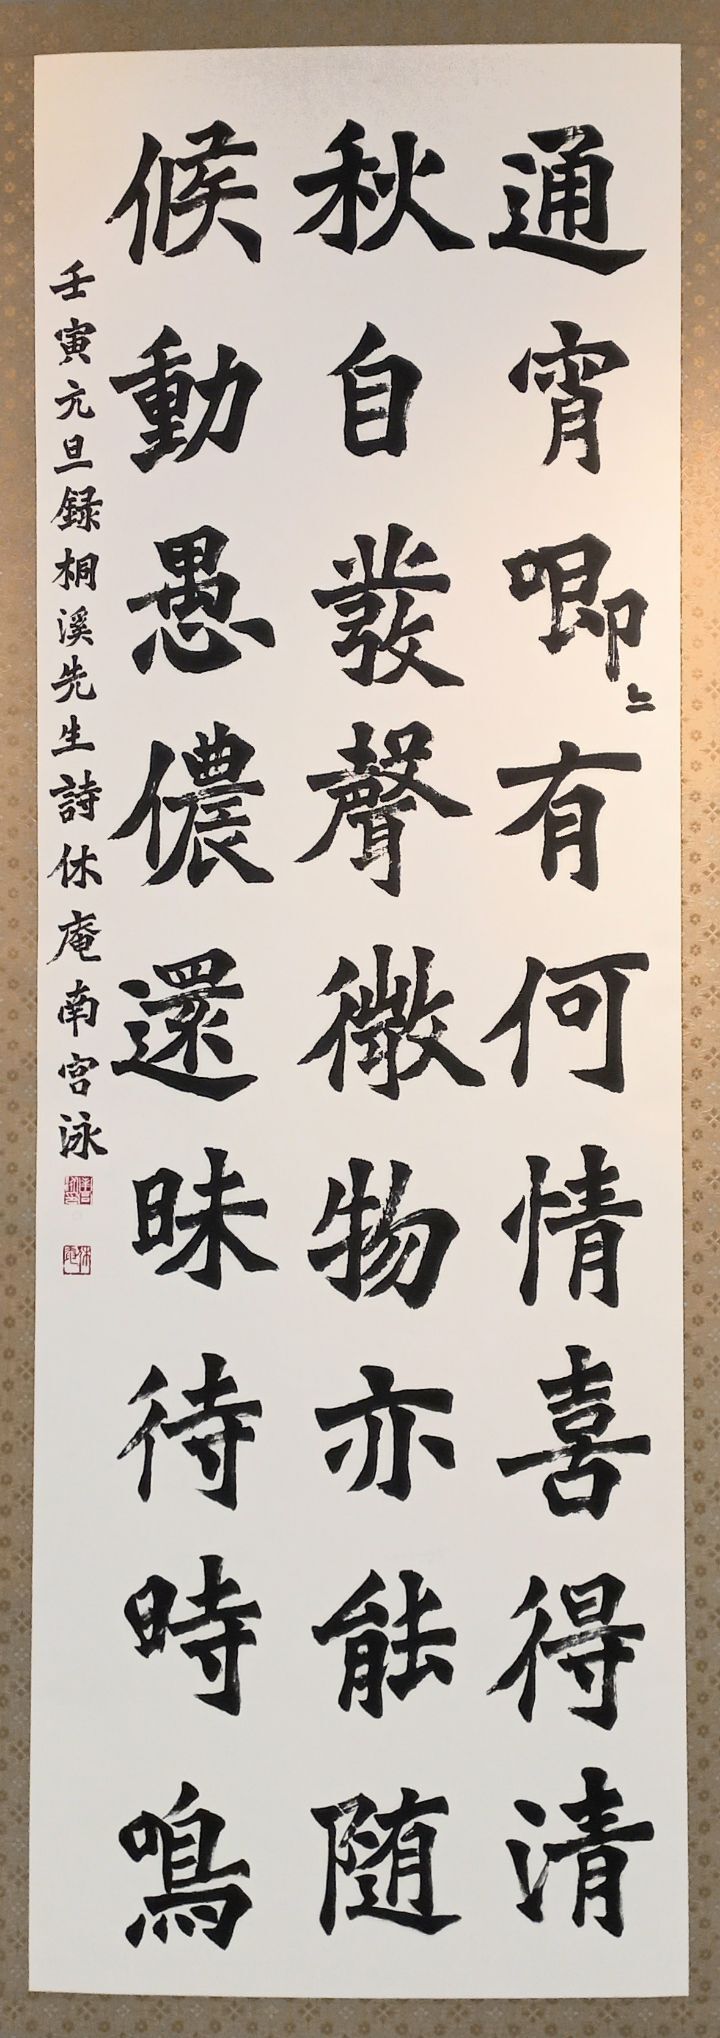 通宵唧〻有何情喜得清
秋自發聲微物亦能随
候動愚儂還昧待時鳴
壬寅元旦録桐溪先生詩休庵南宮泳